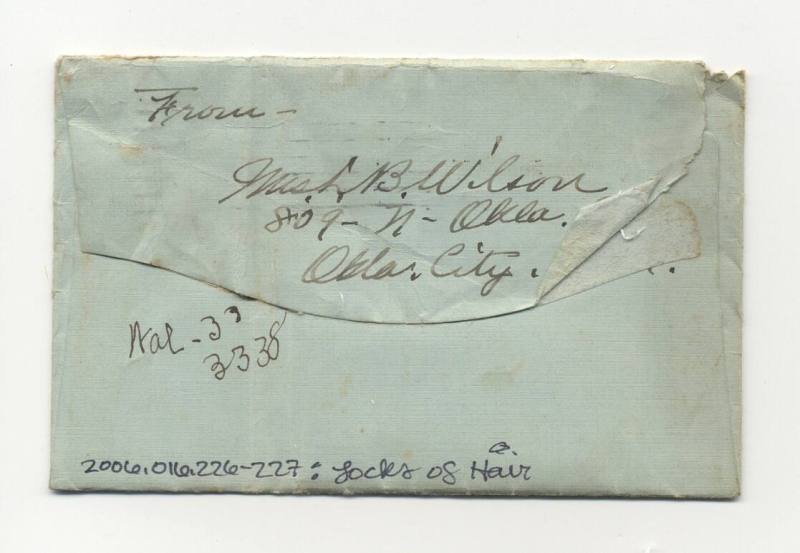 From -
Mrs. L. B. Wilson
809 - N - Okla.
Okla. City.
Wal - 3
3338
2006.016.226-227: Locks of Hair